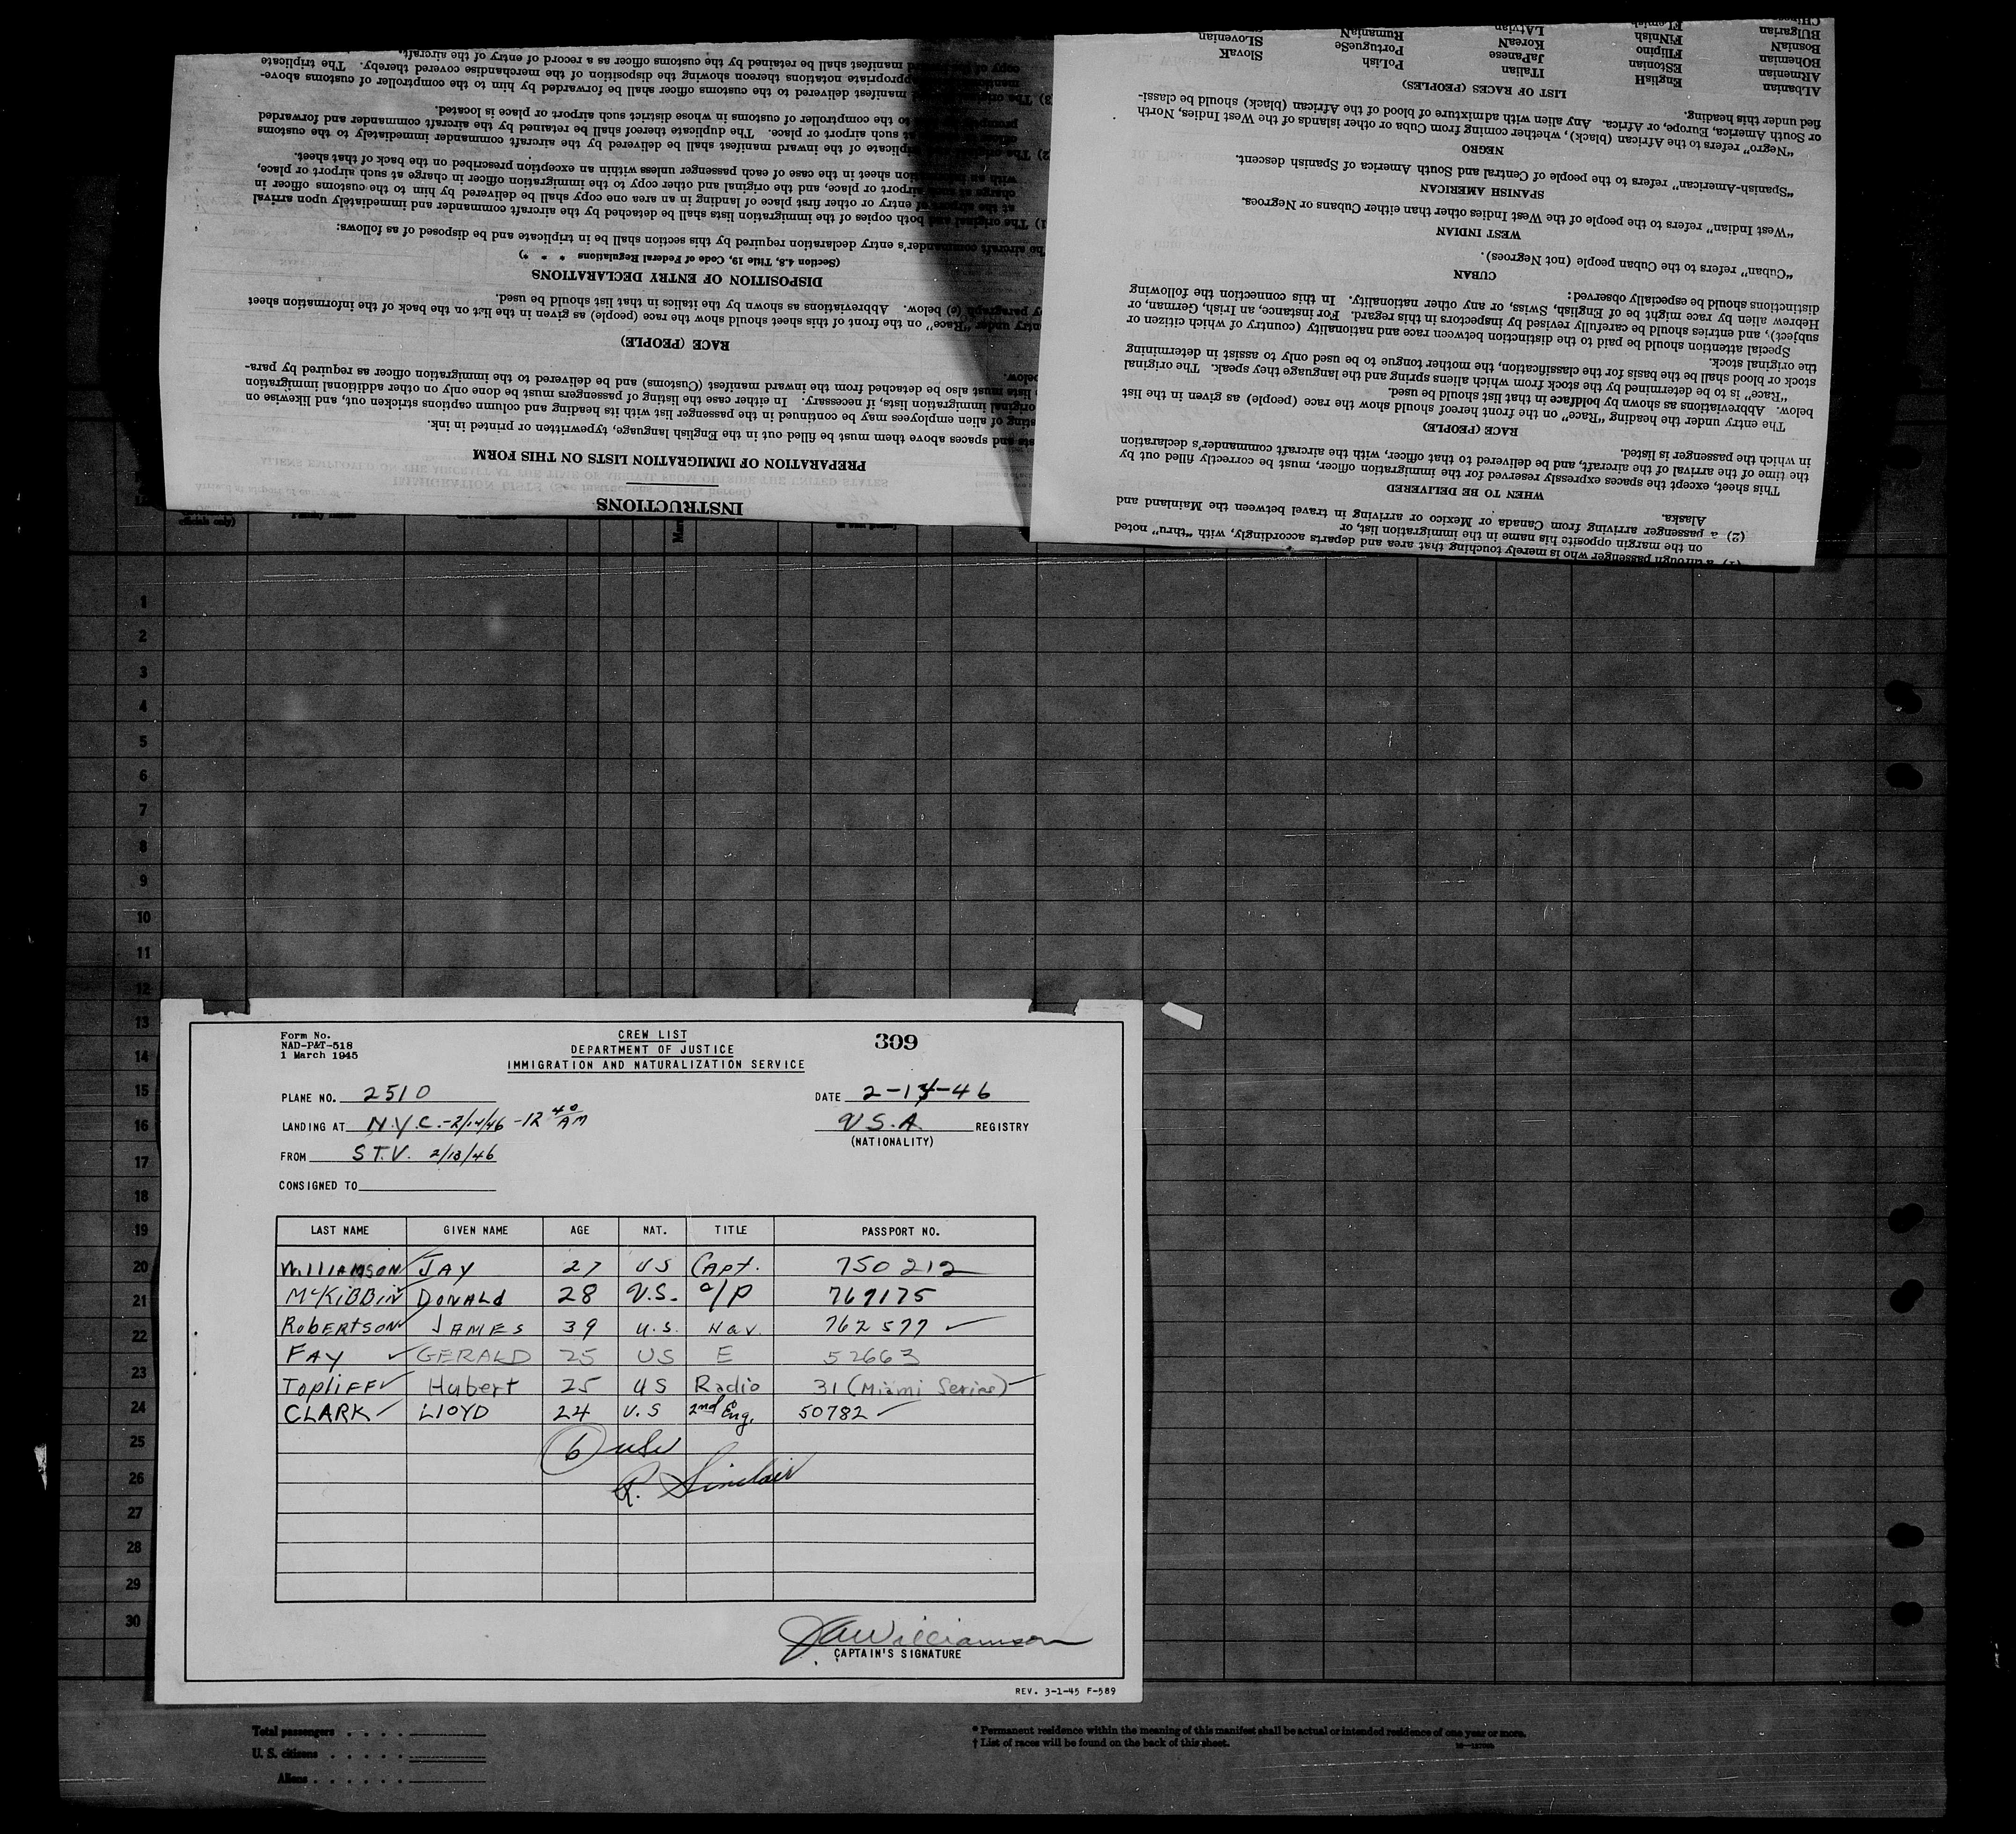 copy of this inward manifest shall be retained by the customs officer as a record of entry of the aircraft.
appropriate notations thereon showing the disposition of the merchandise covered thereby. The triplicate
3) The original manifest delivered to the customs officer shall be forwarded by him to the comptroller of customs above-
to the comptroller of customs in whose district such airport or place is located.
at such airport or place. The duplicate thereof shall be retained by the aircraft commander and forwarded
2) The triplicate of the inward manifest shall be delivered by the aircraft commander immediately to the customs
with an information sheet in the case of each passenger unless within an exception prescribed on the back of that sheet.
charge at such airport or place, and the original and other copy to the immigration officer in charge at such airport or place,
at the airport of entry or other first place of landing in an area one copy shall be delivered by him to the customs officer in
1) The original and both copies of the immigration lists shall be detached by the aircraft commander and immediately upon arrival
The aircraft commander's entry declaration required by this section shall be in triplicate and be disposed of as follows:
(Section 4.8, Title 19, Code of Federal Regulations * * *)
DISPOSITION OF ENTRY DECLARATIONS
by paragraph (e) below. Abbreviations as shown by the italics in that list should be used.
entry under "Race" on the front of this sheet should show the race (people) as given in the list on the back of the information sheet
RACE (PEOPLE)
below.
lists must also be detached from the inward manifest (Customs) and be delivered to the immigration officer as required by para-
original immigration lists, if necessary. In either case the listing of passengers must be done only on other additional immigration
listing of alien employees may be continued in the passenger list with its heading and column captions stricken out, and likewise on
and spaces above them must be filled out in the English language, typewritten or printed in ink.
PREPARATION OF IMMIGRATION LISTS ON THIS FORM
INSTRUCTIONS
CHinese FLemish LAtvian RumaniaN SLovenian
BUlgarian FiNnish KoreaN PortugueSe SlovaK
BosniaN FIlipino JaPanese PoLish
BOhemian EStonian ITalian
ARmenian EnglisH
ALbanian
LIST OF RACES (PEOPLES)
fied under this heading.
or South America, Europe, or Africa. Any alien with admixture of blood of the African (black) should be classi-
"Negro" refers to the African (black), whether coming from Cuba or other islands of the West Indies, North
NEGRO
"Spanish-American" refers to the people of Central and South America of Spanish descent.
SPANISH AMERICAN
"West Indian" refers to the people of the West Indies other than either Cubans or Negroes.
WEST INDIAN
"Cuban" refers to the Cuban people (not Negroes).
CUBAN
distinctions should be especially observed:
Hebrew alien by race might be of English, Swiss, or any other nationality. In this connection the following
subject), and entries should be carefully revised by inspectors in this regard. For instance, an Irish, German, or
Special attention should be paid to the distinction between race and nationality (country of which citizen or
the original stock.
stock or blood shall be the basis for the classification, the mother tongue to be used only to assist in determining
"Race" is to be determined by the stock from which aliens spring and the language they speak. The original
below. Abbreviations as shown by boldface in that list should be used.
The entry under the heading "Race" on the front hereof should show the race (people) as given in the list
RACE (PEOPLE)
in which the passenger is listed.
the time of the arrival of the aircraft, and be delivered to that officer, with the aircraft commander's declaration
This sheet, except the spaces expressly reserved for the immigration officer, must be correctly filled out by
WHEN TO BE DELIVERED
Alaska.
(2) a passenger arriving from Canada or Mexico or arriving in travel between the Mainland and
on the margin opposite his name in the immigration list, or
(1) a through passenger who is merely touching that area and departs accordingly, with "thru" noted
officials only)
1
2
3
4
5
6
7
8
9
10
11
12
13
14
15
16
17
18
19
20
21
22
23
24
25
26
27
28
29
30
Form No.
NAD-P&T-518
1 March 1945
CREW LIST
DEPARTMENT OF JUSTICE
IMMIGRATION AND NATURALIZATION SERVICE
309
PLANE NO. 2510
DATE 2-13-46
LANDING AT N.Y.C.-2/14/46 -12 40 AM
U.S.A. REGISTRY
(NATIONALITY)
FROM S.T.V. 2/13/46
CONSIGNED TO
LAST NAME GIVEN NAME AGE NAT. TITLE PASSPORT NO.
WIllIAMSON JAY 27 US Capt. 750212
McKiBBiN DONALd 28 U.S. c/P 769175
RoBERTSON JAMES 39 U.S. Nav. 762577
FAY GERALD 25 US E 52663
TopliFF Hubert 25 US Radio 31 (Miami Series)
CLARK LlOYD 24 U.S 2nd Eng. 50782
6 usc
R. Sinclair
JAWilliamson
CAPTAIN'S SIGNATURE
REV. 3-1-45 F-589
Total passengers . . . .
U. S. citizens . . . . .
Aliens . . . . . .
* Permanent residence within the meaning of this manifest shall be actual or intended residence of one year or more.
† List of races will be found on the back of this sheet.